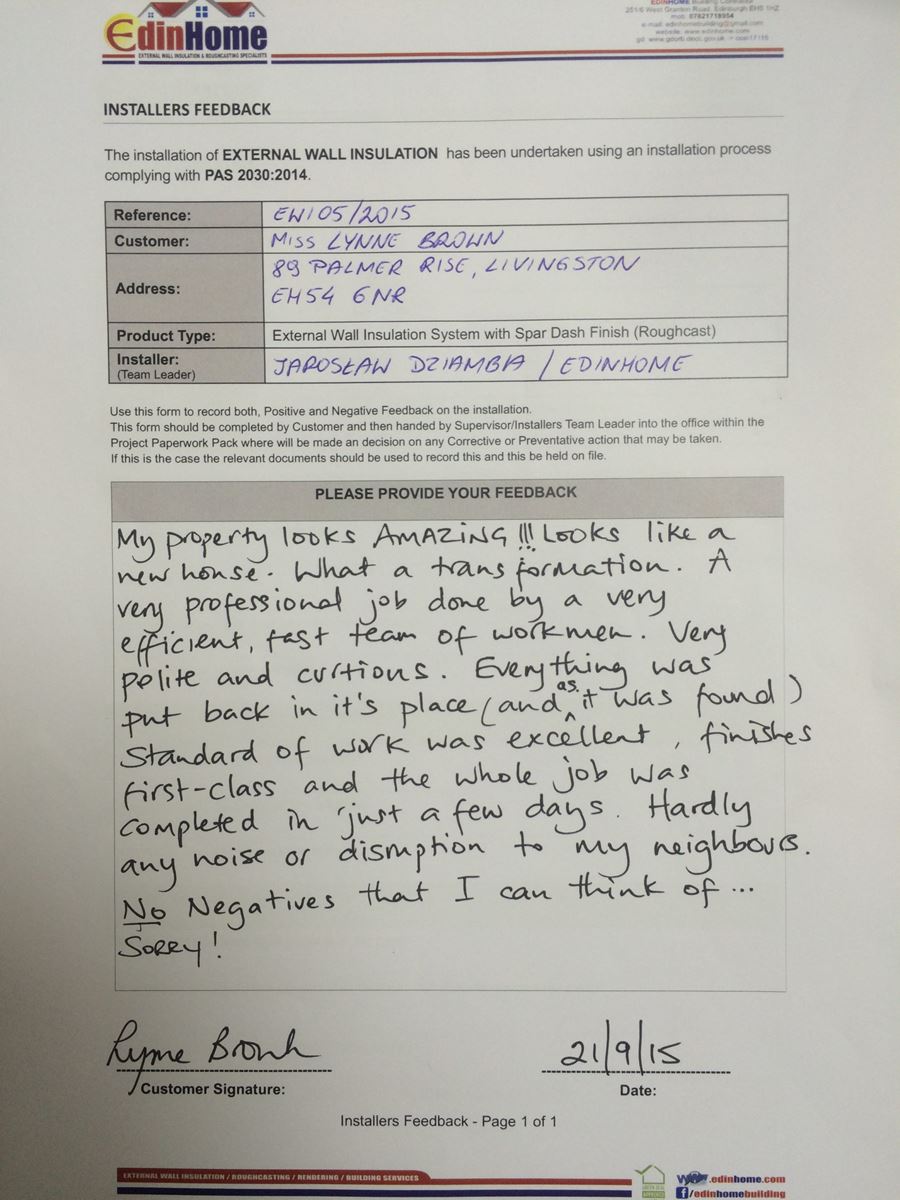 EdinHome
EXTERNAL WALL INSULATION & ROUGHCASTING SPECIALISTS
EDINHOME Building Contractor
251/6 West Granton Road, Edinburgh EH5 1HZ
mob: 07821718954
e-mail: edinhomebuilding@gmail.com
website: www.edinhome.com
INSTALLERS FEEDBACK
The installation of EXTERNAL WALL INSULATION has been undertaken using an installation process
complying with PAS 2030:2014.
Reference: EWI05/2015
Customer: MISS LYNNE BROWN
Address: 89 PALMER RISE, LIVINGSTON
EH54 6NR
Product Type: External Wall Insulation System with Spar Dash Finish (Roughcast)
Installer: JAROSŁAW DZIAMBA / EDINHOME
(Team Leader)
Use this form to record both, Positive and Negative Feedback on the installation.
This form should be completed by Customer and then handed by Supervisor/Installers Team Leader into the office within the
Project Paperwork Pack where will be made an decision on any Corrective or Preventative action that may be taken.
If this is the case the relevant documents should be used to record this and this be held on file.
PLEASE PROVIDE YOUR FEEDBACK
My property looks AMAZING!!! Looks like a
new house. What a transformation. A
very professional job done by a very
efficient, fast team of workmen. Very
polite and curtious. Everything was
put back in it's place (and as it was found)
Standard of work was excellent, finishes
first-class and the whole job was
completed in just a few days. Hardly
any noise or disruption to my neighbours.
No Negatives that I can think of ...
SORRY!
Lynne Brown 21/9/15
Customer Signature: Date:
Installers Feedback - Page 1 of 1
EXTERNAL WALL INSULATION / ROUGHCASTING / RENDERING / BUILDING SERVICES
.edinhome.com
/edinhomebuilding